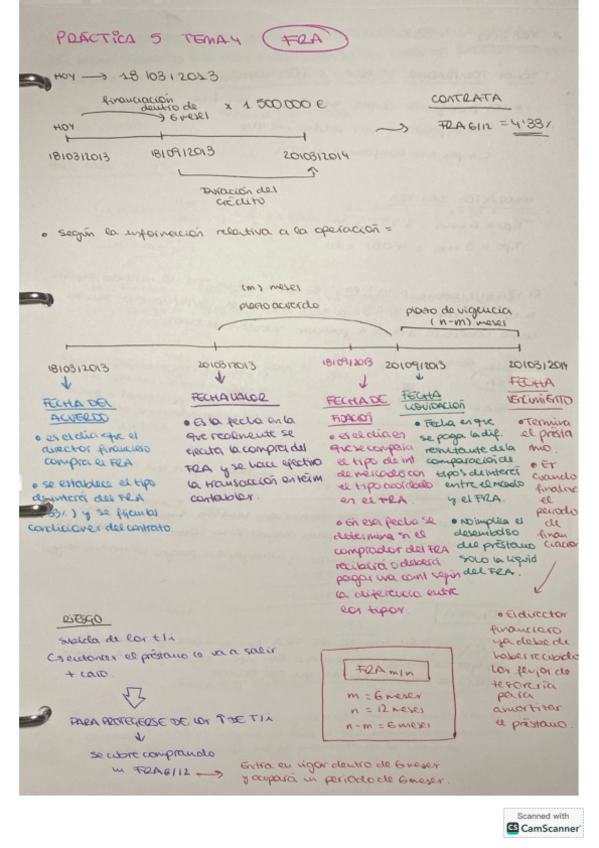 PRÁCTICA 5 TEMA 4 FRA
HOY → 18/03/2013
financiación
dentro de
6 meses
x 1 500 000 €
CONTRATA
FRA 6/12 = 4'33%
HOY
18/03/2013 18/09/2013 20/03/2014
Duración del
crédito
• Según la información relativa a la operación =
(m) meses
plazo acuerdo
plazo de vigencia
(n-m) meses
18/03/2013 20/03/2013 18/09/2013 20/09/2013 20/03/2014
FECHA DEL
ACUERDO
• es el día que el
director financiero
compra el FRA
• se establece el tipo
de interés del FRA
33%) y se fijan las
condiciones del contrato.
FECHA VALOR
• Es la fecha en la
que realmente se
ejecuta la compra del
FRA y se hace efectivo
la transacción en térm
contables.
FECHA DE
FIJACIÓN
• es el día en
que se compara
el tipo de int
de mercado con
el tipo acordado
en el FRA
• En esa fecha se
determina si el
comprador del FRA
recibirá o deberá
pagar una cant según
la diferencia entre
los tipos.
FECHA
LIQUIDACIÓN
• Fecha en que
se paga la dif.
resultante de la
comparación de
tipos de interés
entre el mercado
y el FRA.
• No implica el
desembolso
del préstamo
solo la liquid
del FRA.
FECHA
VENCIMIENTO
• Termina
el présta
mo.
• Es
cuando
finaliza
el
periodo
de
finan
ciación
• El director
financiero
ya debe de
haber recibido
los flujos de
tesorería
para
amortizar
el préstamo.
RIESGO
subida de los t/i
↳ entonces el préstamo le va a salir
+ caro.
PARA PROTEGERSE DE LOS ↑ DE T/i
se cubre comprando
un FRA 6/12 → Entra en vigor dentro de 6 meses
y ocupará un periodo de 6 meses.
FRA m/n
m = 6 meses
n = 12 meses
n - m = 6 meses
Scanned with
CS CamScanner